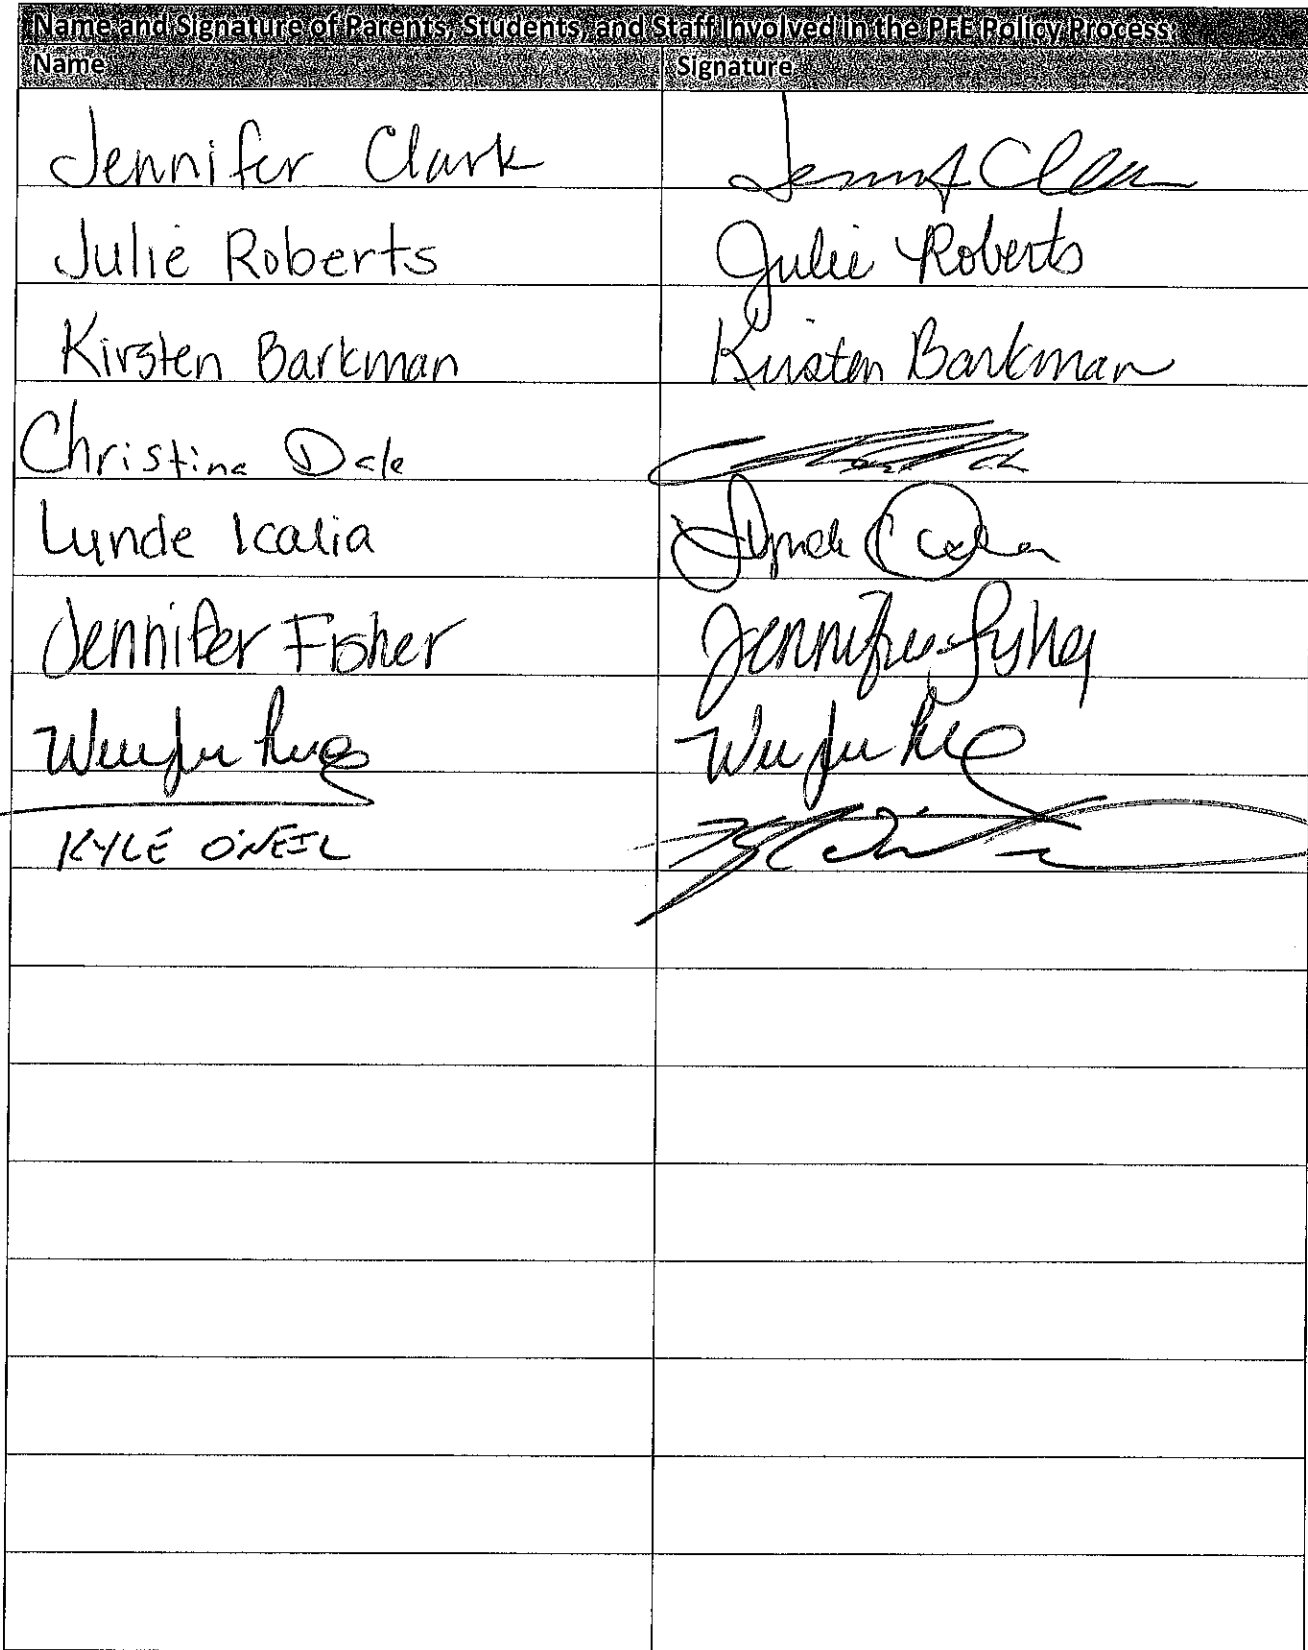 Name and Signature of Parents, Students, and Staff Involved in the PFE Policy Process:
Name Signature
Jennifer Clark
Julie Roberts Julie Roberts
Kirsten Barkman Kirsten Barkman
Christina Dale
Lynde Icalia
Jennifer Fisher Jennifer Fisher
KYLE O'NEIL